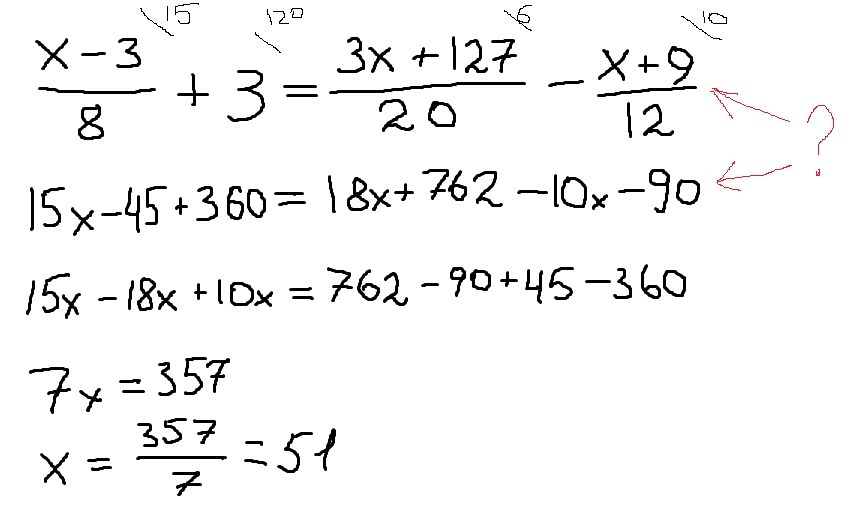 \15 \120 \6 \10
x-3/8 + 3 = 3x+127/20 - x+9/12
?
15x-45+360 = 18x+762-10x-90
15x-18x+10x = 762-90+45-360
7x = 357
x = 357/7 = 51